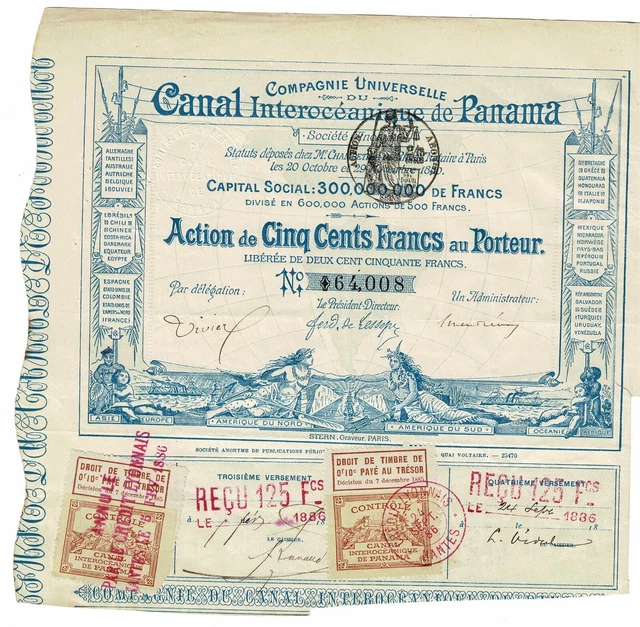 COMPAGNIE UNIVERSELLE
DU
Canal Interocéanique de Panama
Société
Statuts déposés chez Mr. à Paris
les 20 Octobre et 29 1880.
CAPITAL SOCIAL: 300,000,000 DE FRANCS
DIVISÉ EN 600,000 ACTIONS DE 500 FRANCS.
Action de Cinq Cents Francs au Porteur.
LIBÉRÉE DE DEUX CENT CINQUANTE FRANCS.
No. 64,008
Par délégation:
Le Président-Directeur:
Un Administrateur:
ALLEMAGNE
(ANTILLES)
AUSTRALIE
AUTRICHE
BELGIQUE
(BOLIVIE)
(BRÉSIL)
CHILI
CHINE
COSTA-RICA
DANEMARK
EQUATEUR
EGYPTE
ESPAGNE
ETATS-UNIS DE
COLOMBIE
ETATS-UNIS DE
(FRANCE)
GDE BRETAGNE
GRÈCE
GUATEMALA
HONDURAS
ITALIE
JAPON
MEXIQUE
NICARAGUA
NORWÈGE
PAYS-BAS
PÉROU
PORTUGAL
RUSSIE
RÉP. ARGENTINE
SALVADOR
SUÈDE
TURQUIE
URUGUAY,
VENEZUELA
ASIE
EUROPE
AMÉRIQUE DU NORD
AMÉRIQUE DU SUD
OCÉANIE
AFRIQUE
STERN, Graveur, PARIS.
SOCIÉTÉ ANONYME DE PUBLICATIONS
QUAI VOLTAIRE. — 25470
DROIT DE TIMBRE DE
0f10c PAYÉ AU TRÉSOR
Décision du 7 décembre 1885
CONTRÔLE
CANAL
INTEROCÉANIQUE
DE PANAMA
TROISIÈME VERSEMENT
REÇU 125 F
LE 1886
LE CAISSIER,
DROIT DE TIMBRE DE
0f10c PAYÉ AU TRÉSOR
Décision du 7 décembre 1885
CONTRÔLE
CANAL
INTEROCÉANIQUE
DE PANAMA
NANTES
QUATRIÈME VERSEMENT
REÇU 125 Fcs
LE 24 Sept 1886
COMPAGNIE DU CANAL INTEROCÉANIQUE DE PANAMA